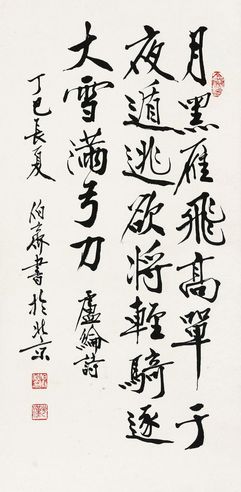 月黑雁飛高單于
夜遁逃欲將輕騎逐
大雪滿弓刀 盧綸詩
丁巳長夏 伯齋書於北京